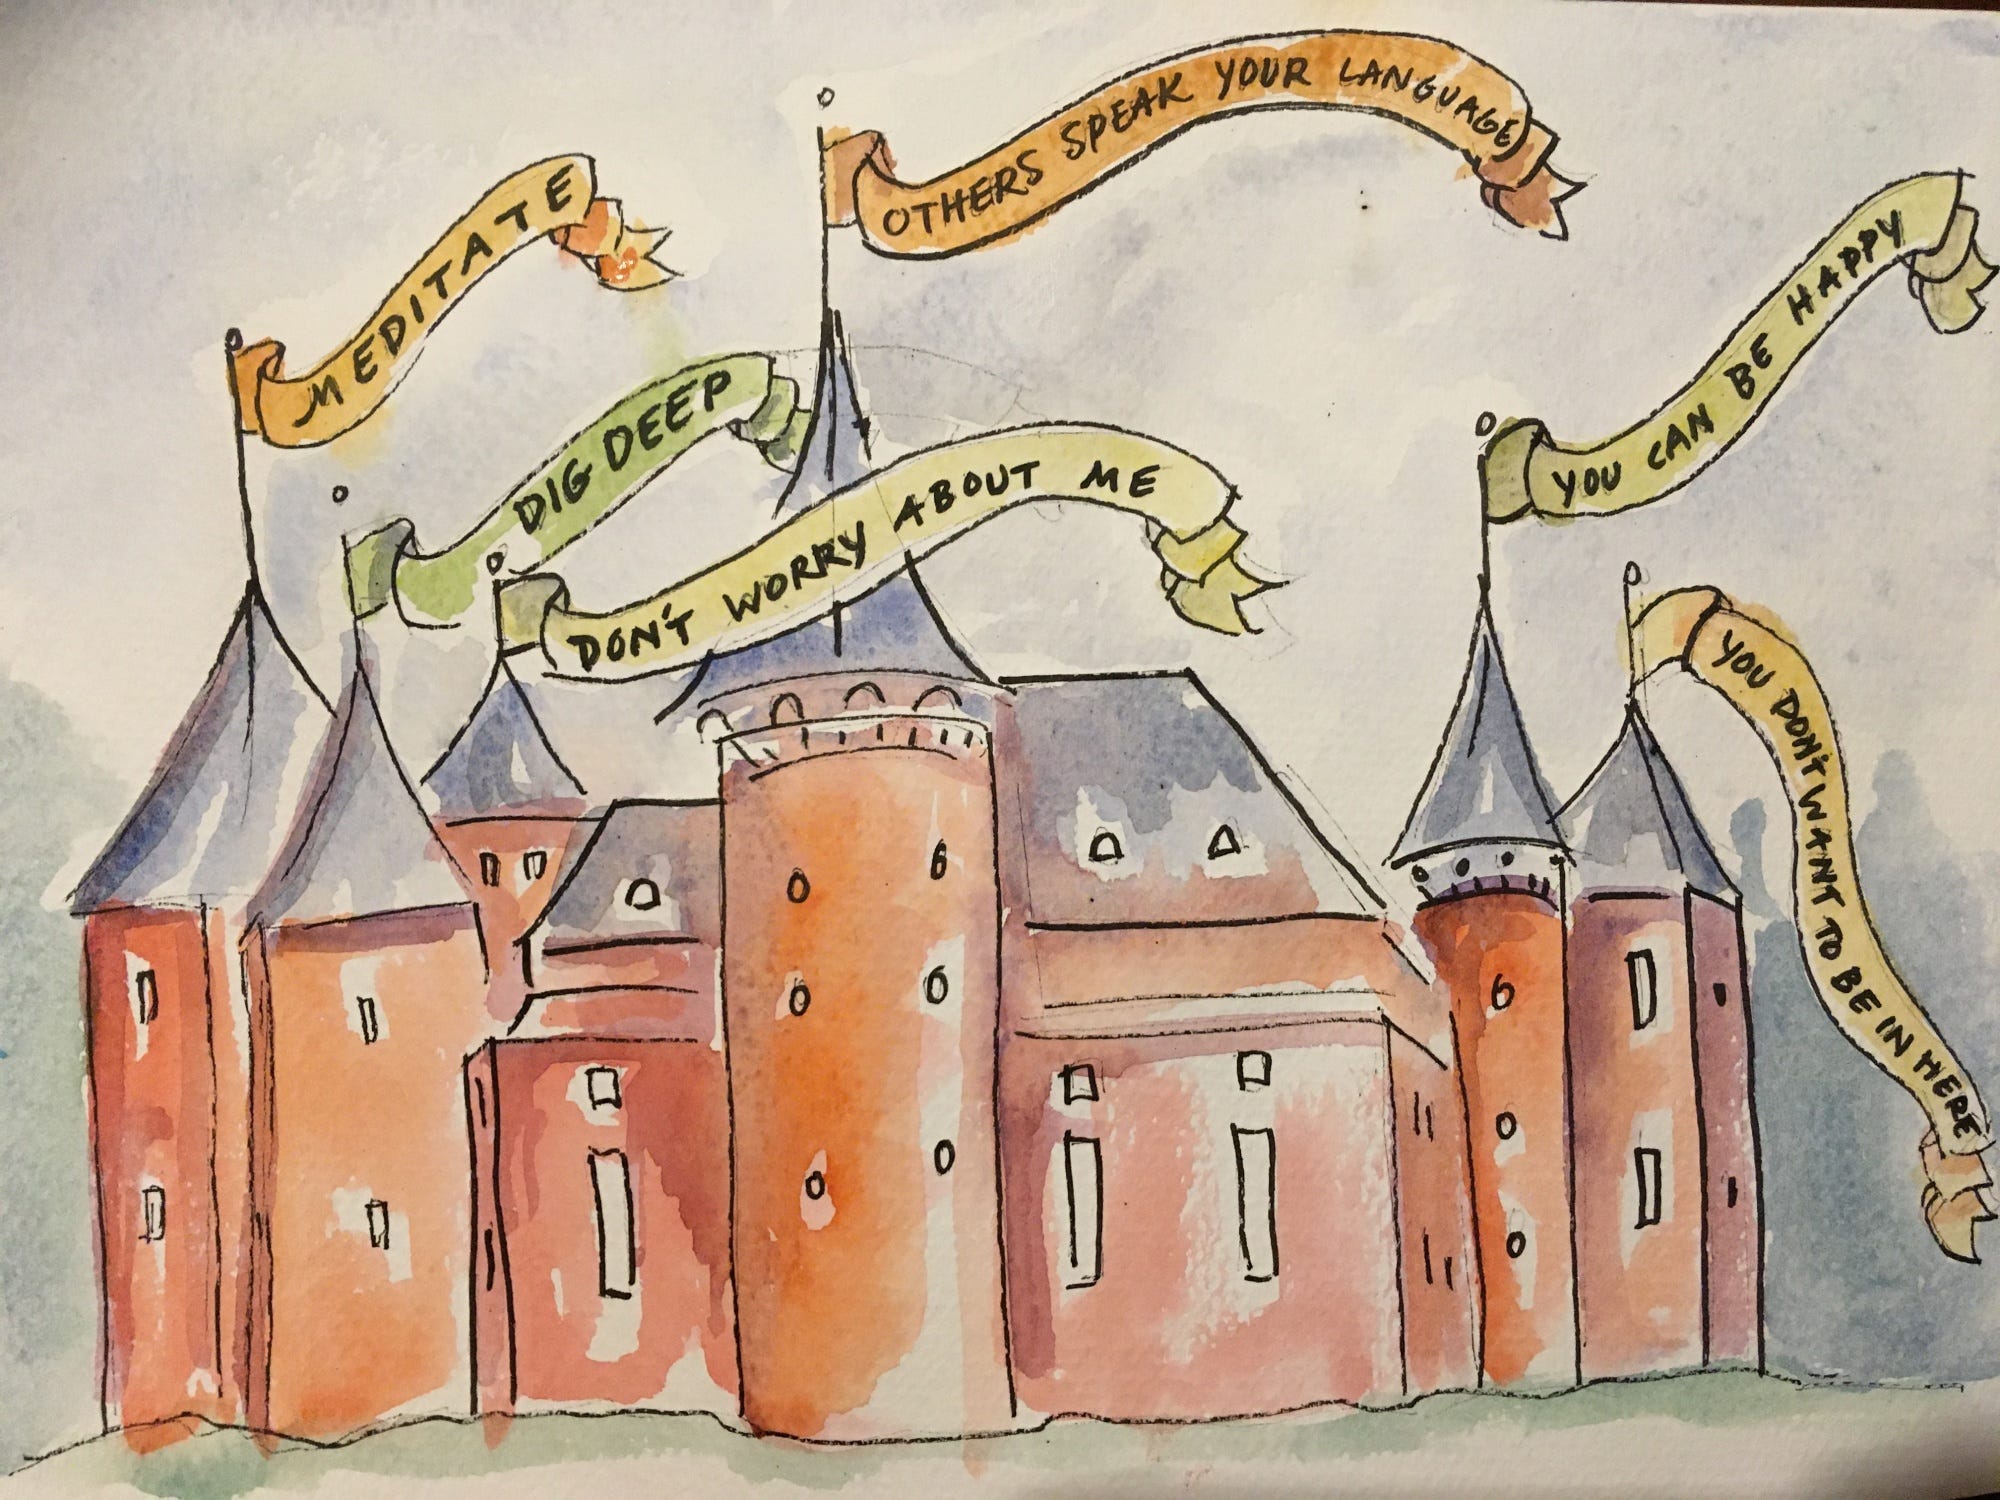 OTHERS SPEAK YOUR LANGUAGE
MEDITATE
DIG DEEP
DON'T WORRY ABOUT ME
YOU CAN BE HAPPY
YOU DON'T WANT TO BE IN HERE